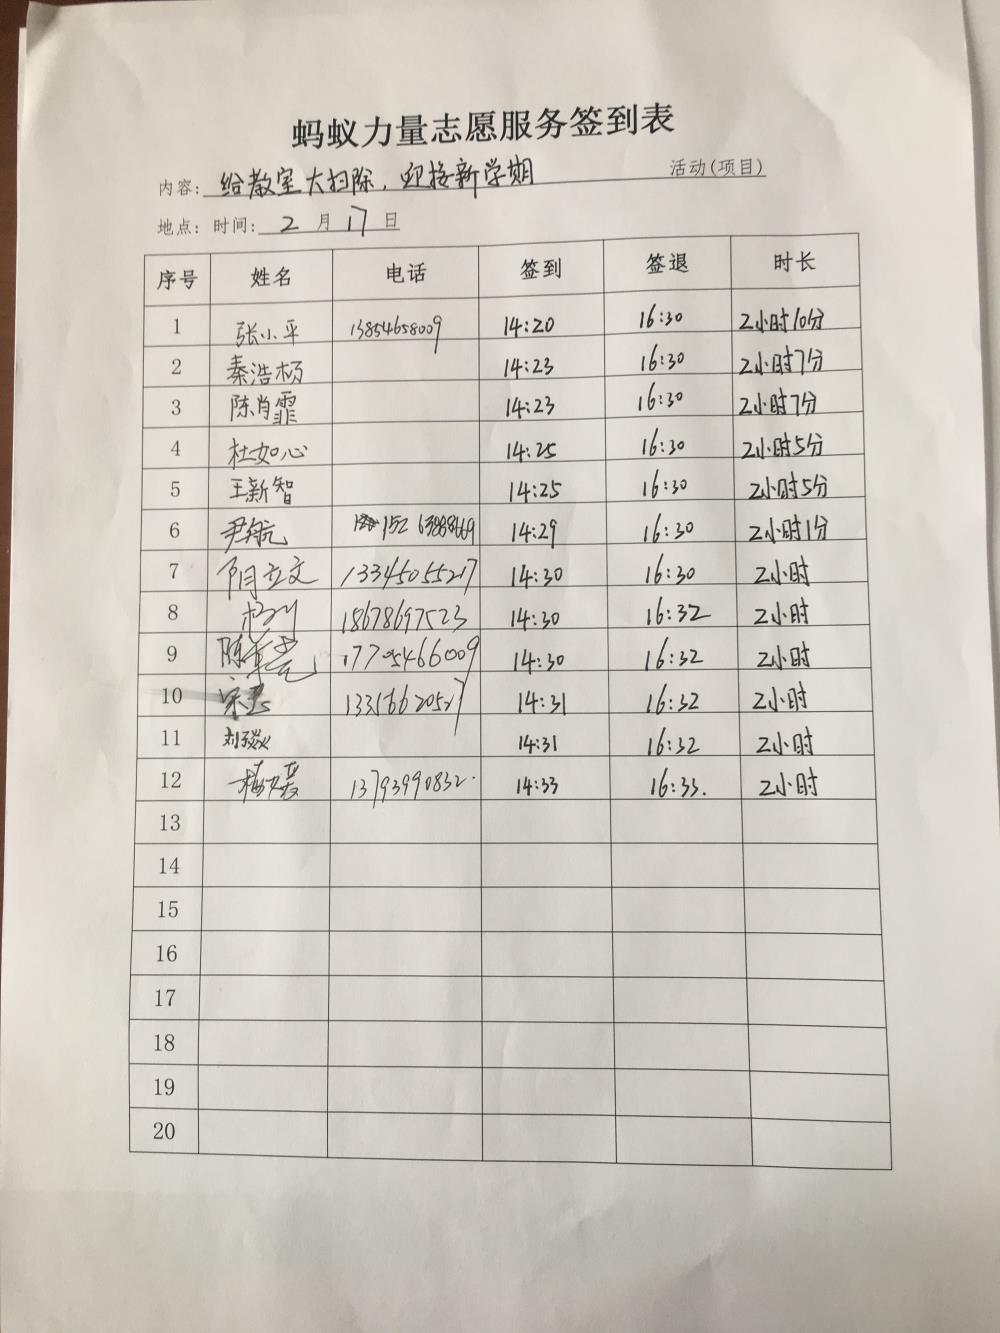 蚂蚁力量志愿服务签到表
内容: 给教室大扫除，迎接新学期 活动(项目)
地点: 时间: 2 月 17 日
序号 姓名 电话 签到 签退 时长
1 张小平 13854658009 14:20 16:30 2小时10分
2 秦浩杨 14:23 16:30 2小时7分
3 陈肖霏 14:23 16:30 2小时7分
4 杜如心 14:25 16:30 2小时5分
5 王新智 14:25 16:30 2小时5分
6 尹航 152 14:29 16:30 2小时1分
7 阴立文 13345055217 14:30 16:30 2小时
8 18678697523 14:30 16:32 2小时
9 陈 17705466009 14:30 16:32 2小时
10 宋 13356620527 14:31 16:32 2小时
11 刘 14:31 16:32 2小时
12 13793990832. 14:33 16:33. 2小时
13
14
15
16
17
18
19
20